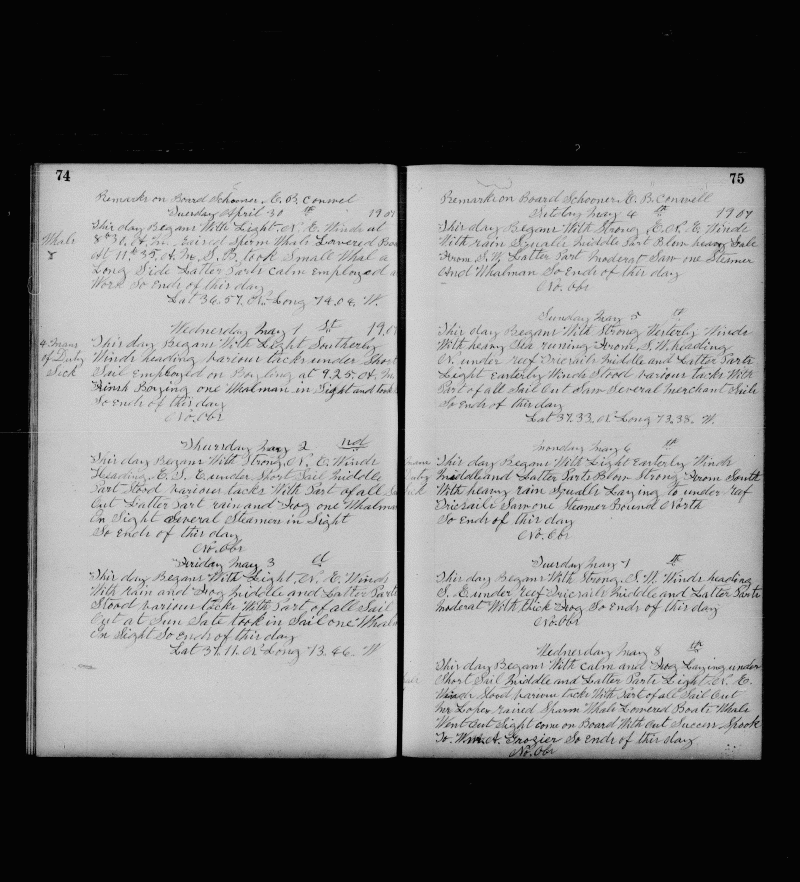 74
Remarks on Board Schooner E. B. Conwel
Tuesday April 30 th 1907
This day Begans With Light N. E. Winds at
8 h 30. A. M. raised Sperm Whals Lowered Boa
At 11 h 35. A. M. S. B. took Small Whal a
Long Side Latter Parts calm Employed a
Work So Ends of this day
Lat 36.57. N. Long 74.04. W.
Whals
Wednesday May 1 St 190
4 mans
of Duty
Sick
This day Begans With Light Southerly
Winds heading various tacks under Short
Sail Employed on Boyling at 9.25. A. M.
Finsh Boying one Whalman in Sight and took
So Ends of this day
No. Obs
Thursday May 2 nd
This day Begans With Strong N. E. Winds
Heading E. S. E under Short Sail Middle
Part Stood various tacks With Part of all Sa
Out Latter Part rain and Fog one Whalma
In Sight Several Steamers in Sight
So Ends of this day
No. Obs
Friday May 3 d
This day Begans With Light N. E. Winds
With rain and Fog Middle and Latter Parts
Stood various tacks With Part of all Sail
Out at Sun Sate took in Sail one Whalm
In Sight So Ends of this day
Lat 37.11. N. Long 73.46. W
75
Remarks on Board Schooner E. B. Conwell
May 4 th 1907
This day Begans With Strong E. N. E Winds
With rain Squalls Middle Part Blew heavy Gale
From S. W. Latter Part Moderat Saw one Steamer
And Whalman So Ends of this day
No. Obs
Sunday May 5 th
This day Begans With Strong Westerly Winds
With heavy Sea runing From S. W. heading
N. under reef Middle and Latter Parts
Light Easterly Winds Stood various tacks With
Part of all Sail Out Saw Several Merchant Sails
So Ends of this day
Lat 37.33. N. Long 73.38. W.
Monday May 6 th
mans
Duty
Sick
This day Begans With Light Easterly Winds
Middle and Latter Parts Blow Strong From South
With heavy rain Squalls Laying to under reaf
Saw one Steamer Bound North
So Ends of this day
No. Obs
Tuesday May 7 th
This day Begans With Strong S. W. Winds heading
S. E under Reef Middle and Latter Parts
Moderat With thick Fog So Ends of this day
No Obs
Wednesday May 8 th
This day Begans With calm and Fog Laying under
Short Sail Middle and Latter Parts Light N. E.
Winds Stood various tacks With Part of all Sail Out
Mr Lopes raised Sparm Whals Lowered Boats Whals
Went Out Sight come on Board With Out Success Spook
To. Wm. A. Grozier So Ends of this day
No. Obs